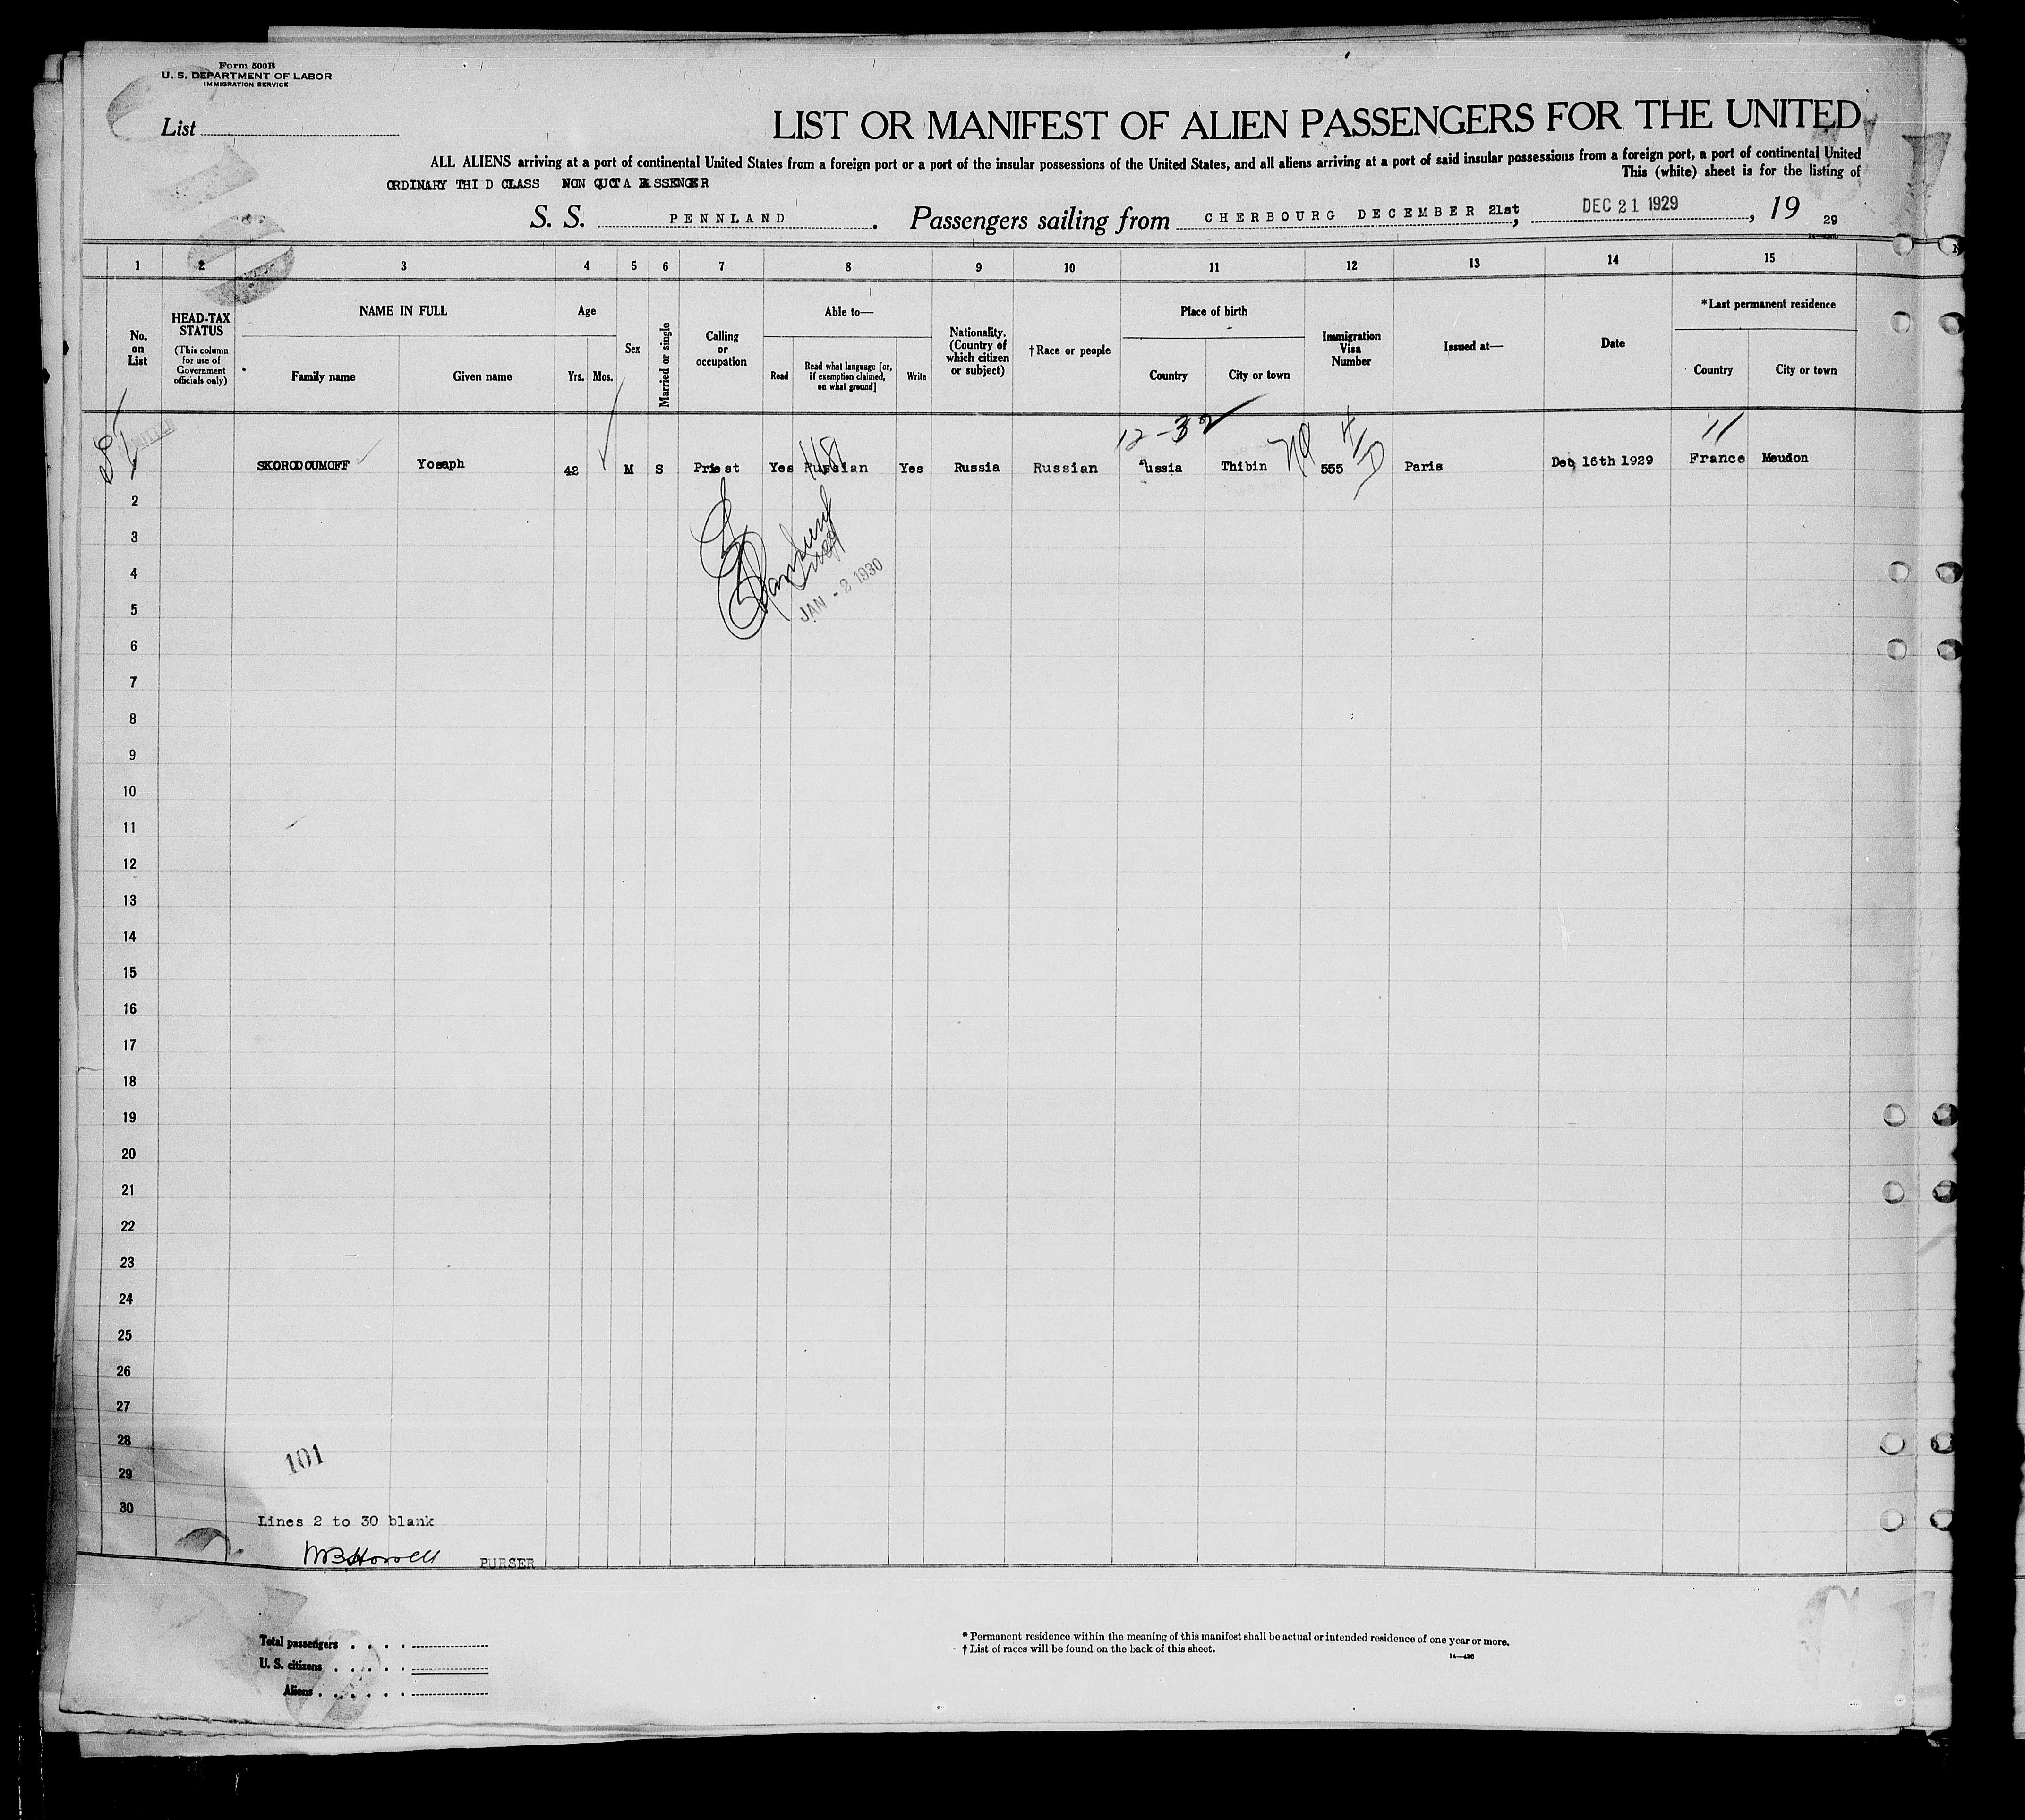 Form 500B
U. S. DEPARTMENT OF LABOR
IMMIGRATION SERVICE
List
LIST OR MANIFEST OF ALIEN PASSENGERS FOR THE UNITED
ALL ALIENS arriving at a port of continental United States from a foreign port or a port of the insular possessions of the United States, and all aliens arriving at a port of said insular possessions from a foreign port, a port of continental United
This (white) sheet is for the listing of
ORDINARY THI D CLASS NON QUOTA PASSENGER
S. S. PENNLAND. Passengers sailing from CHERBOURG DECEMBER 21st, DEC 21 1929, 19 29
1 2 3 4 5 6 7 8 9 10 11 12 13 14 15
No. on List
HEAD-TAX STATUS
(This column for use of Government officials only)
NAME IN FULL
Family name
Given name
Age
Yrs. Mos.
Sex
Married or single
Calling or occupation
Able to—
Read
Read what language [or, if exemption claimed, on what ground]
Write
Nationality. (Country of which citizen or subject)
†Race or people
Place of birth
Country
City or town
Immigration Visa Number
Issued at—
Date
*Last permanent residence
Country
City or town
12-32
11
1 SKORODOUMOFF Yosaph 42 M S Priest Yes Russian Yes Russia Russian ussia Thibin 555 Paris Dec 16th 1929 France Meudon
JAN - 2 1930
2
3
4
5
6
7
8
9
10
11
12
13
14
15
16
17
18
19
20
21
22
23
24
25
26
27
28
29
30
101
Lines 2 to 30 blank
PURSER
Total passengers
U. S. citizens
Aliens
* Permanent residence within the meaning of this manifest shall be actual or intended residence of one year or more.
† List of races will be found on the back of this sheet.
14—430